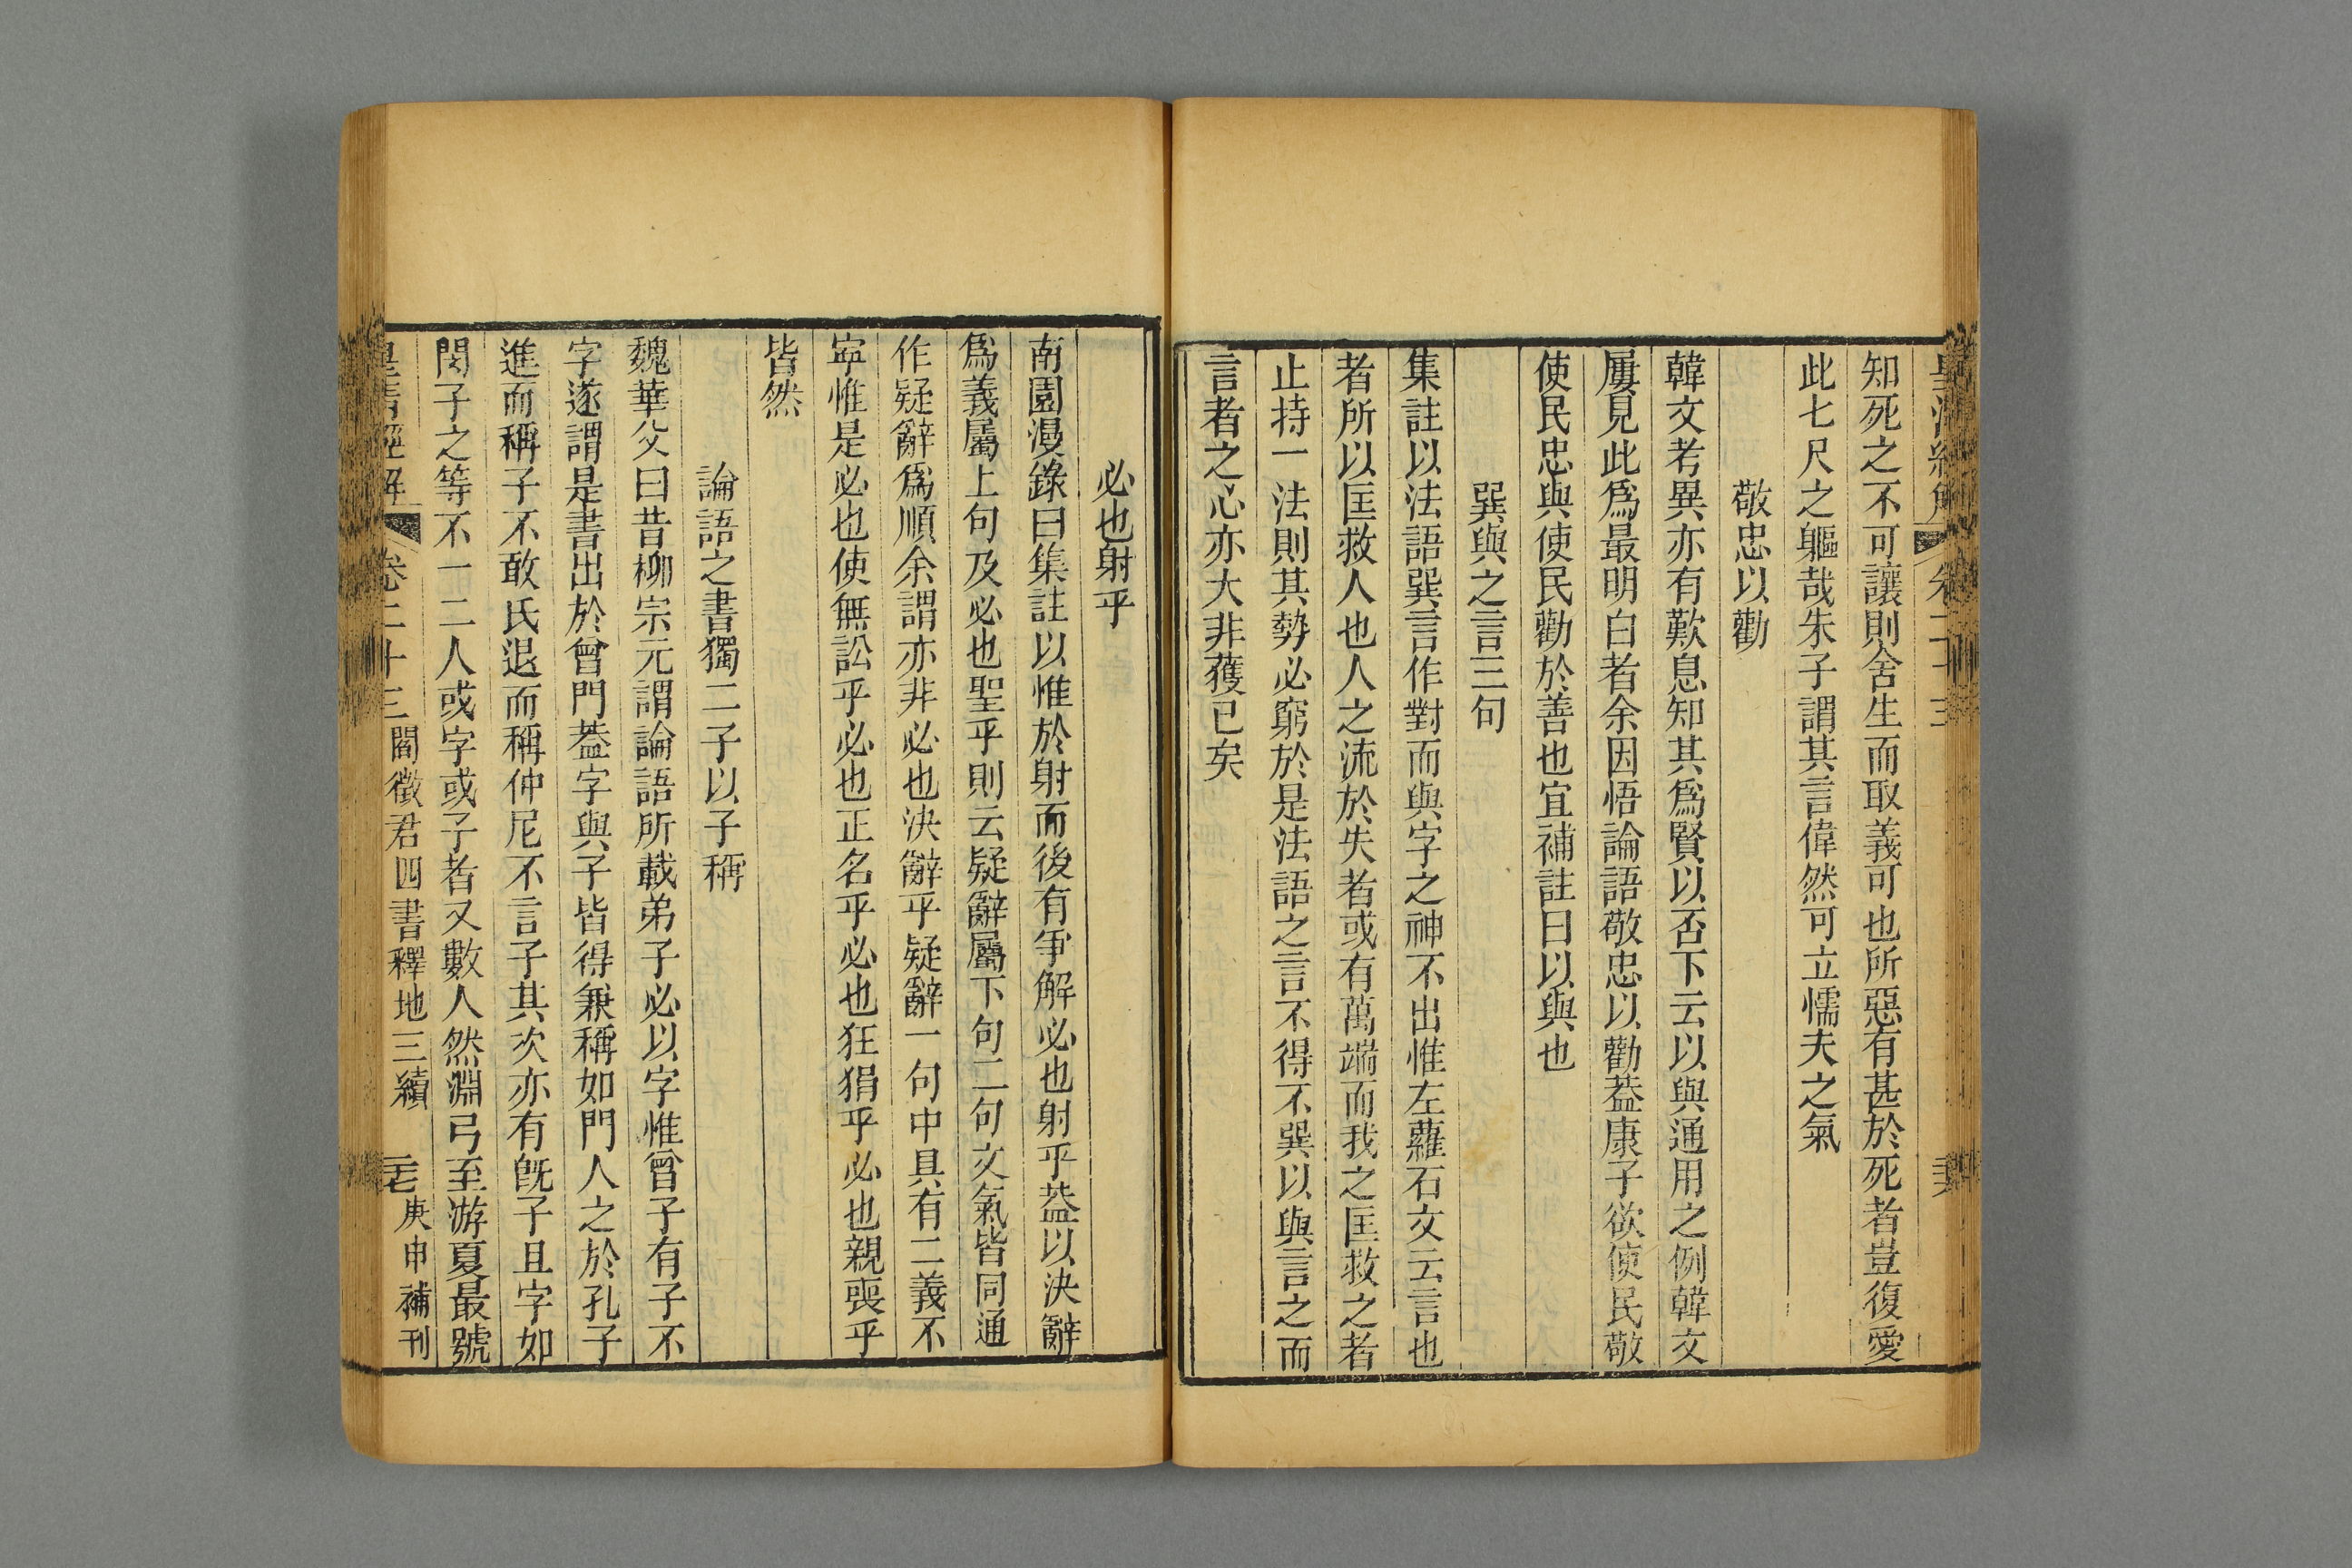 皇清經解 卷二十三
知死之不可讓則舍生而取義可也所惡有甚於死者豈復愛
此七尺之軀哉朱子謂其言偉然可立懦夫之氣
敬忠以勸
韓文考異亦有歎息知其爲賢以否下云以與通用之例韓文
屢見此爲最明白者余因悟論語敬忠以勸葢康子欲使民敬
使民忠與使民勸於善也宜補註曰以與也
巽與之言三句
集註以法語巽言作對而與字之神不出惟左蘿石文云言也
者所以匡救人也人之流於失者或有萬端而我之匡救之者
止持一法則其勢必窮於是法語之言不得不巽以與言之而
言者之心亦大非獲已矣
必也射乎
南園漫錄曰集註以惟於射而後有爭解必也射乎葢以決辭
爲義屬上句及必也聖乎則云疑辭屬下句二句文氣皆同通
作疑辭爲順余謂亦非必也決辭乎疑辭一句中具有二義不
寧惟是必也使無訟乎必也正名乎必也狂狷乎必也親喪乎
皆然
論語之書獨二子以子稱
魏華父曰昔柳宗元謂論語所載弟子必以字惟曾子有子不
字遂謂是書出於曾門葢字與子皆得兼稱如門人之於孔子
進而稱子不敢氏退而稱仲尼不言子其次亦有旣子且字如
閔子之等不一二人或字或子者又數人然淵弓至游夏最號
皇清經解 卷二十三 閻徵君四書釋地三續 庚申補刊